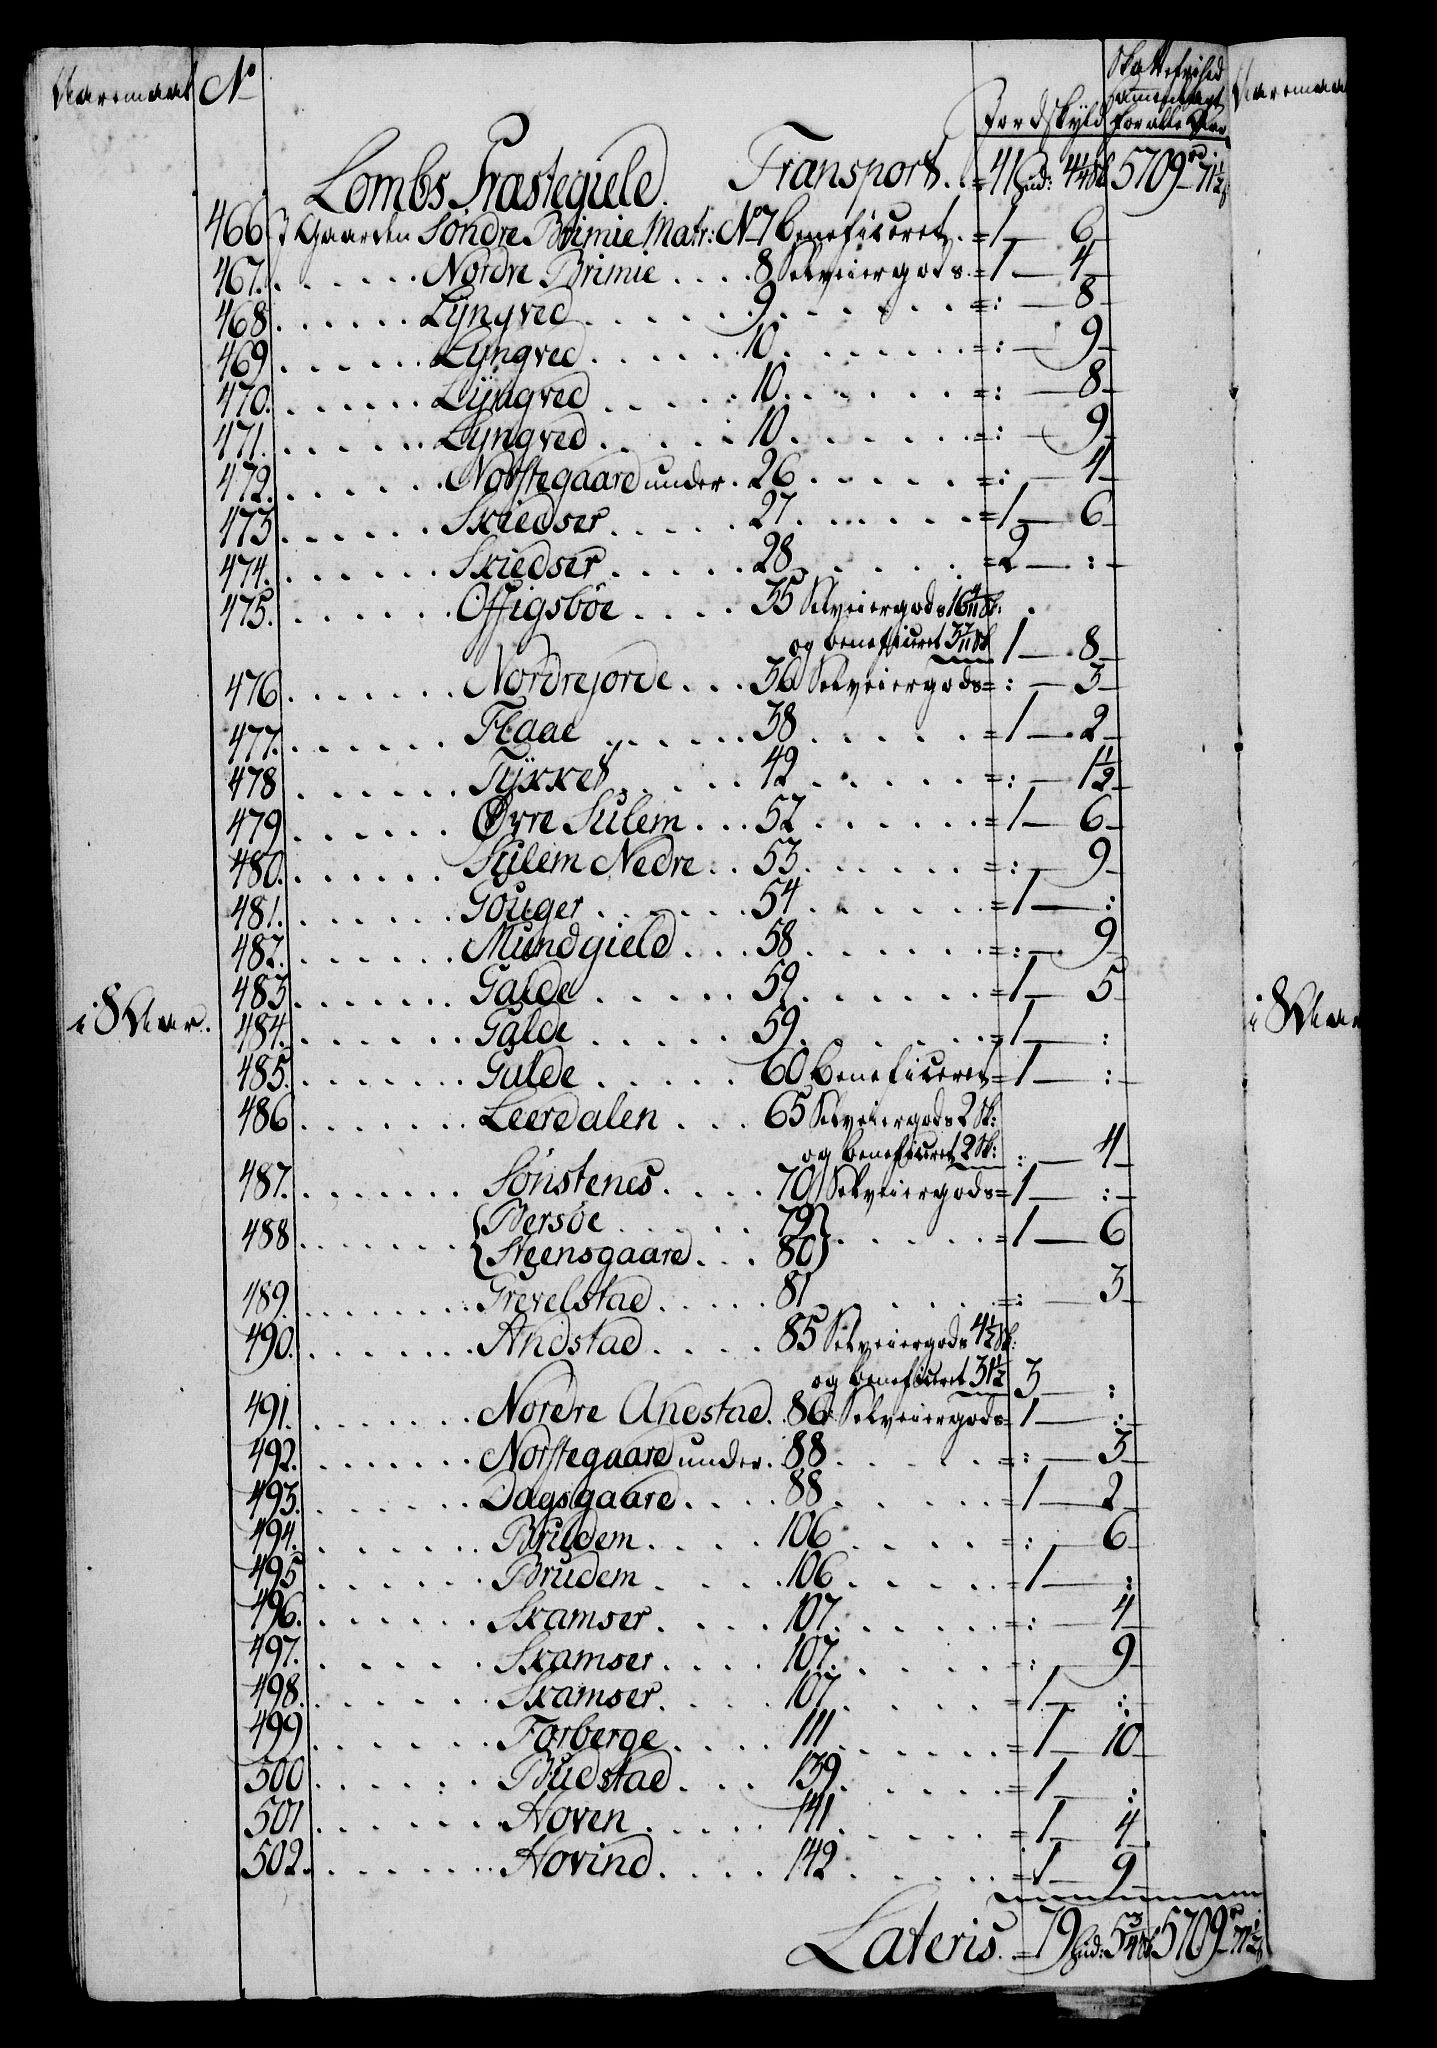 Aaremaal No Jordskyld Skattefrihed sammenlagt for alle Aar Aaremaa
Lombs Præstegield. Transport. = 41 Hud: 4 1/4 Sk 5709 rd 71 1/2 s
466 I Gaarden Söndre Brimie Matr: No 7 beneficeret. = 1 — 6 —
467. Nordre Brimie 8 Selveiergods. = 1 — 4 —
468 Lyngved 9 = : — 8 —
469 Lyngved 10 = : — 9 —
470. Lyngved 10 = : — 8 —
471. Lyngved 10 = : — 9 —
472. Norstegaard under 26 = : — 4 —
473 Skiedser 27 = 1 — 6 —
474. Skiedser 28 = 2 — : —
475. Offigsböe 35 Selveiergods 16 4/11 Sk:
og beneficeret 3 7/11 Sk 1 — 8 —
476 Nordrejorde 36 Selveiergods = : — 3 —
477. Flaae 38 = 1 — 2 —
478 Tykket 42 = : — 1 1/2 —
479 Øvre Sulem 52 = 1 — 6 —
480. Sulem Nedre 53 = : — 9 —
481. Gouger 54 = 1 — :
482. Mundgield 58 = : — 9 —
i 8 Aar. 483 Galde 59 = 1 — 5 — i 8 Aar
484. Galde 59 = 1 — :
485. Galde 60 beneficeret = 1 — : —
486 Leeredalen 65 Selveiergods 2 Sk:
og beneficeret 2 Sk: : — 4 —
487. Sönstenes 70 Selveiergods = 1 — : —
488 { Bersöe 79 } = 1 — 6
{ Steensgaard 80 }
489. Grevelstad 81 = : — 3 —
490. Andstad 85 Selveiergods 4 1/2 Sk:
og beneficeret 31 1/2 3 — :
491. Nordre Andstad 86 Selveiergods = 1 — : —
492. Norstegaard under 88 = : — 3 —
493. Dagsgaard 88 = 1 — 2 —
494. Brudem 106 = : — 6 —
495 Brudem 106 = 1 — :
496. Skamser 107 = : — 4 —
497. Skamser 107 = : — 9 —
498. Skamser 107 = 1 — :
499 Forberge 111 = 1 — 10 —
500 Budstad 139 = 1 — :
501 Hoven 141 = 1 — 4
502. Hovind 142 = 1 — 9 —
Lateris. = 79 Hud: 5 3/4 Sk 5709 rd 71 1/2 s